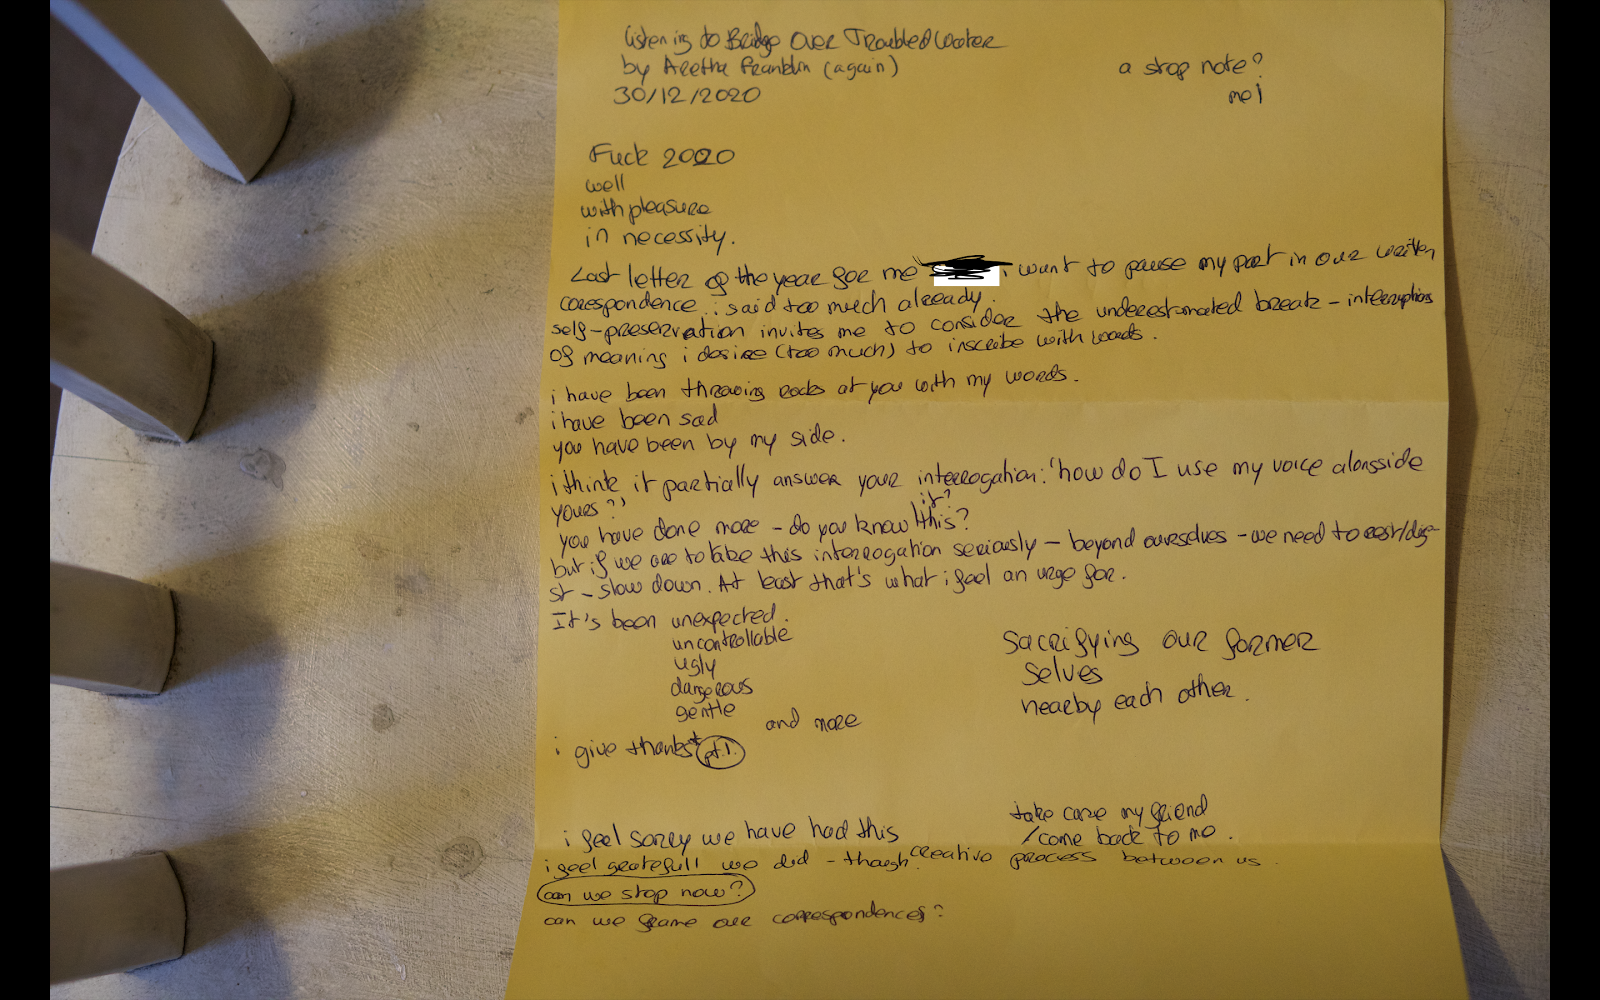 Listening to Bridge Over Troubled Water
by Aretha Franklin (again)
30/12/2020
a stop note?
me!
Fuck 2020
well
with pleasure
in necessity.
Last letter of the year for me i want to pause my part in our written
corespondence. i said too much already.
self-preservation invites me to consider the underestimated break - interruptions
of meaning i desire (too much) to inscribe with words.
i have been throwing rocks at you with my words.
i have been sad
you have been by my side.
i think it partially answer your interrogation: 'how do I use my voice alongsside
yours?'
it?
you have done more - do you know this?
but if we are to take this interrogation seriously - beyond ourselves - we need to rest/dige-
st - slow down. At least that's what i feel an urge for.
It's been unexpected.
uncontrollable
ugly
dangerous
gentle
and more
Sacrifying our former
selves
nearby each other.
i give thanks* pt.1.
take care my friend
/come back to me.
i feel sorry we have had this
i feel gratefull we did - though creative process between us.
can we stop now?
can we frame our correspondences?